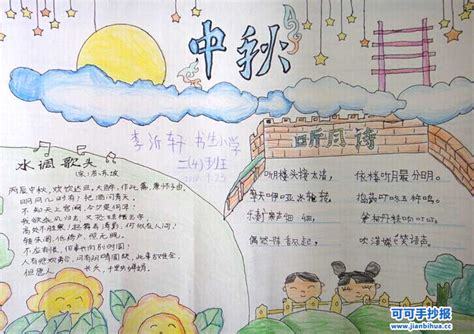 中秋
李沂轩 书生小学
二(4)班
水调歌头
(宋)苏东坡
丙辰中秋,欢饮达旦,大醉,作此篇,兼怀子由。
明月几时有?把酒问青天。
不知天上宫阙,今夕是何年?
我欲乘风归去,又恐琼楼玉宇,
高处不胜寒!起舞弄清影,何似在人间?
转朱阁,低绮户,照无眠。
不应有恨,何事长向别时圆?
人有悲欢离合,月有阴晴圆缺,此事古难全。
但愿人长久,千里共婵娟。
听月诗
听月楼头接太清, 依楼听月最分明。
摩天咿哑冰轮转, 捣药叮咚玉杵鸣。
声细细, 斧柯丹桂响叮叮。
偶然一阵香风起, 吹落嫦娥笑语声。
可可手抄报
www.jianbihua.cc